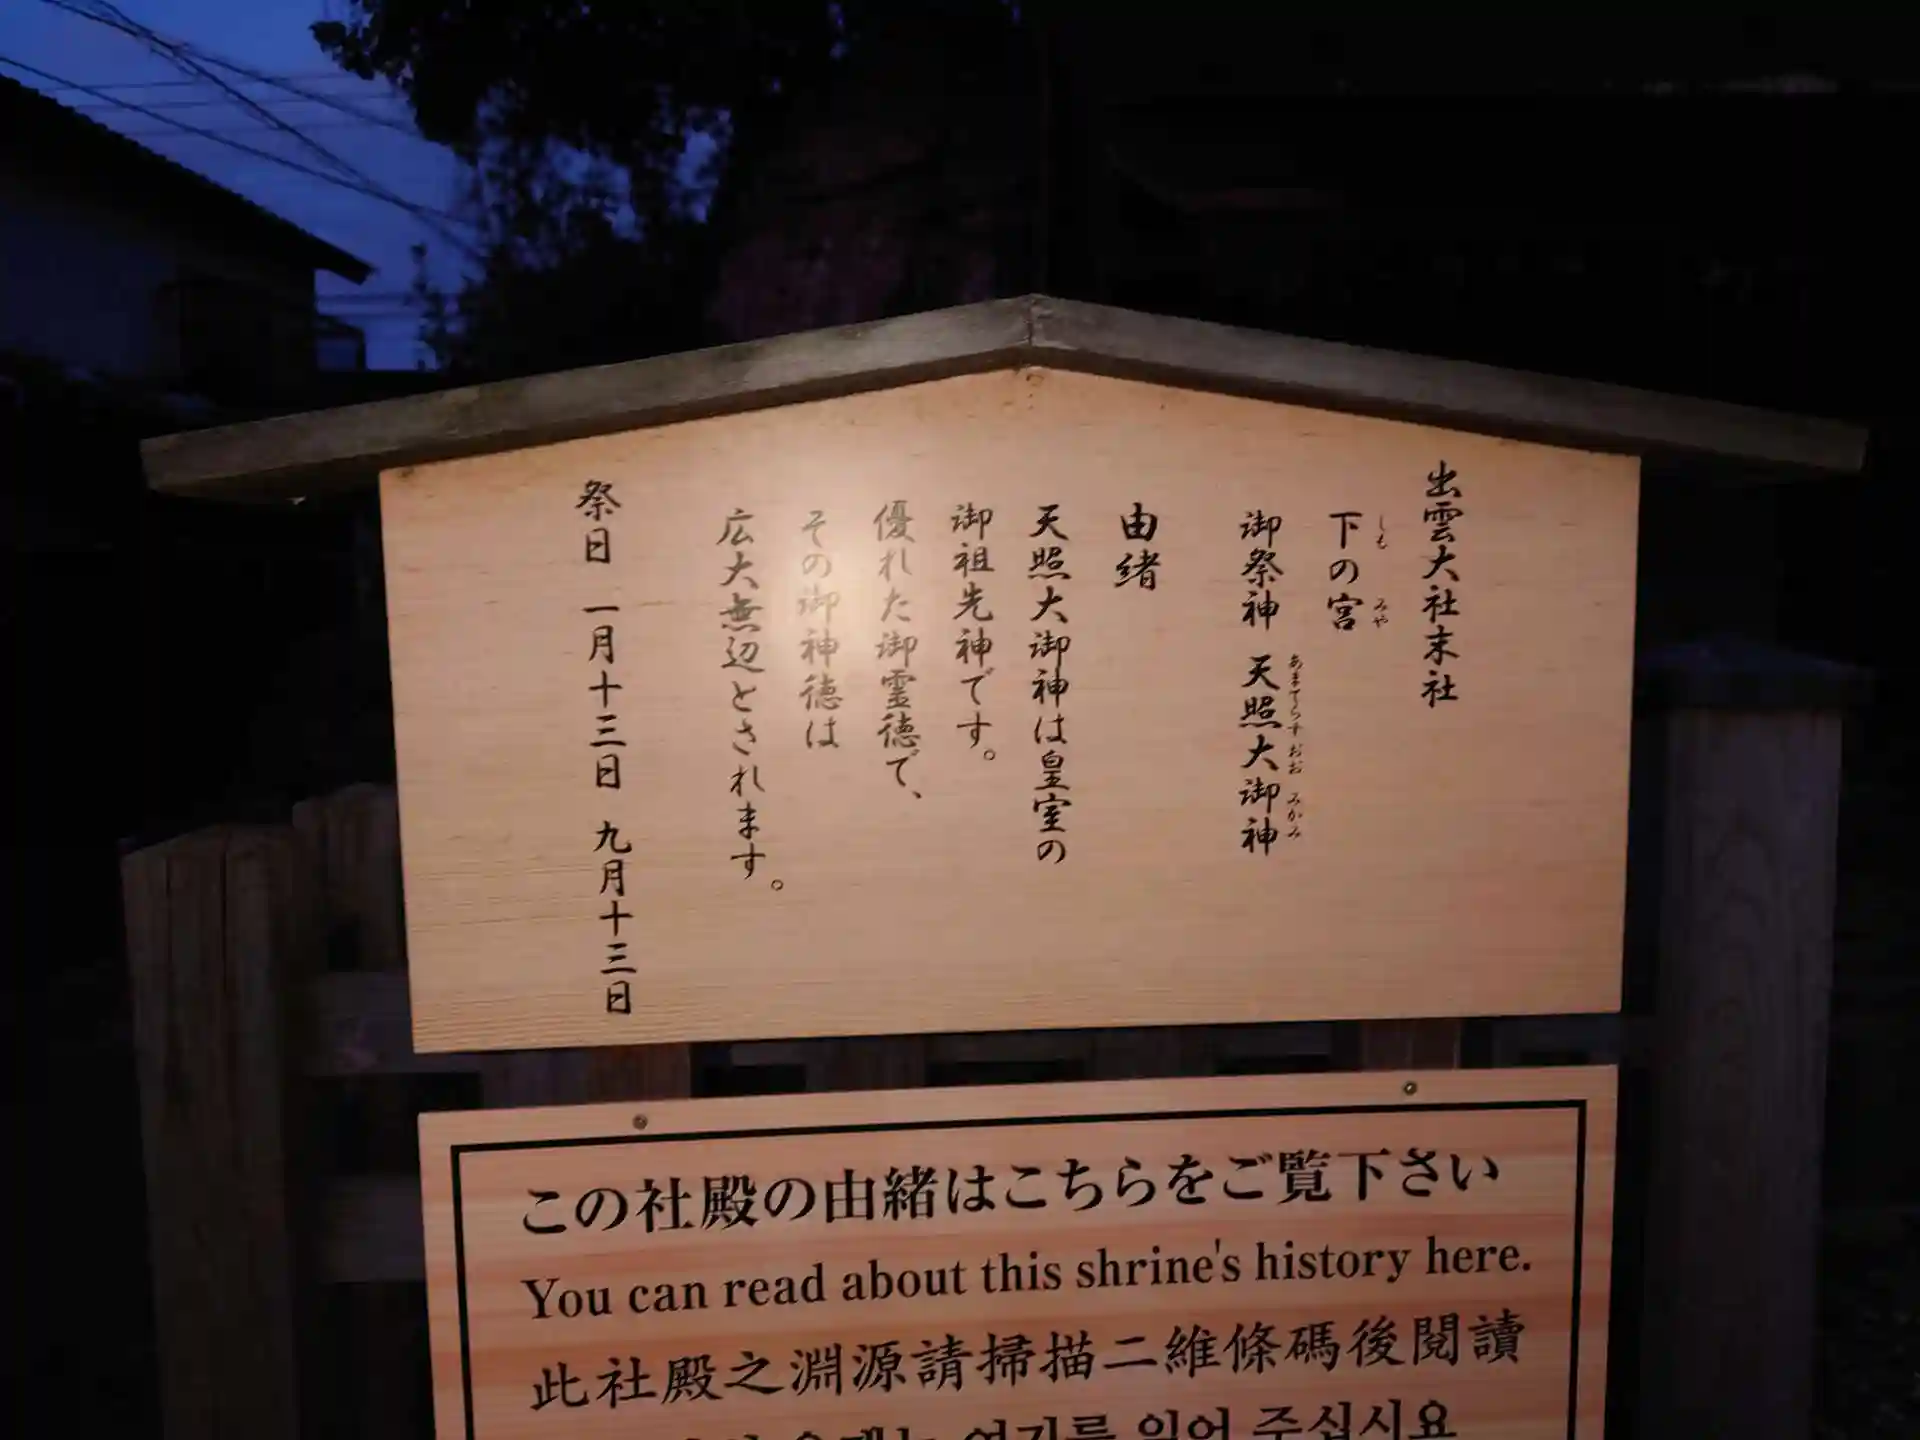 出雲大社末社
下の宮
しも みや
御祭神 天照大御神
あまてらすおおみかみ
由緒
天照大御神は皇室の
御祖先神です。
優れた御霊徳で、
その御神徳は
広大無辺とされます。
祭日 一月十三日 九月十三日
この社殿の由緒はこちらをご覧下さい
You can read about this shrine's history here.
此社殿之淵源請掃描二維條碼後閱讀
여기를 읽어 주십시요